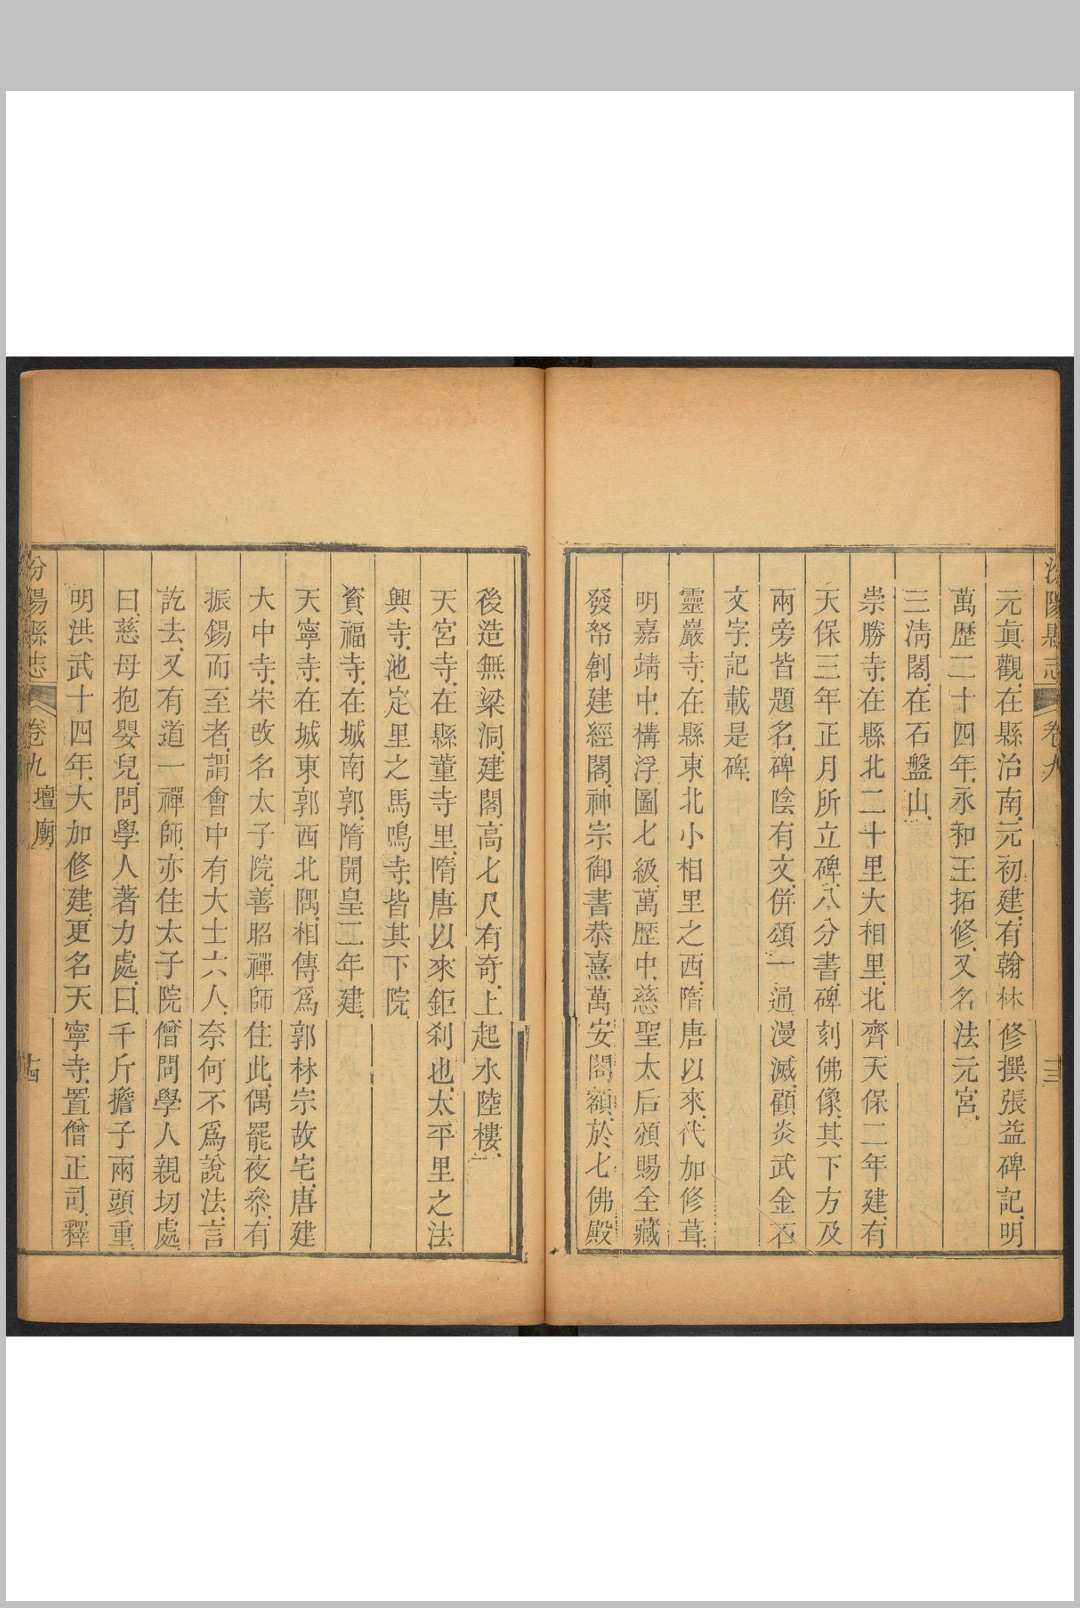 汾陽縣志 卷九 十三
元眞觀.在縣治南.元初建.有翰林修撰張益碑記.明
萬歷二十四年.永和王拓修.又名法元宮.
三清閣.在石盤山.
崇勝寺.在縣北二十里大相里.北齊天保二年建.有
天保三年正月所立碑.八分書.碑刻佛像.其下方及
兩旁皆題名.碑陰有文.併頌一通.漫滅.顧炎武金石
文字.記載是碑.
靈巖寺.在縣東北小相里之西.隋唐以來.代加修葺.
明嘉靖中.構浮圖七級.萬歷中.慈聖太后頒賜全藏
發帑創建經閣.神宗御書恭熹萬安閣額.於七佛殿
後造無梁洞.建閣.高七尺有奇.上起水陸樓.
天宮寺.在縣董寺里.隋唐以來鉅剎也.太平里之法
興寺.池定里之馬鳴寺.皆其下院.
資福寺.在城南郭.隋開皇二年建.
天寧寺.在城東郭西北隅.相傳爲郭林宗故宅.唐建
大中寺.宋改名太子院.善昭禪師住此.偶罷夜叅.有
振錫而至者.謂會中有大士六人.奈何不爲說法.言
訖去.又有道一禪師.亦住太子院僧問學人親切處.
曰.慈母抱嬰兒.問學人著力處.曰.千斤擔子兩頭重.
明洪武十四年.大加修建.更名天寧寺.置僧正司.釋
汾陽縣志 卷九 壇廟 十四